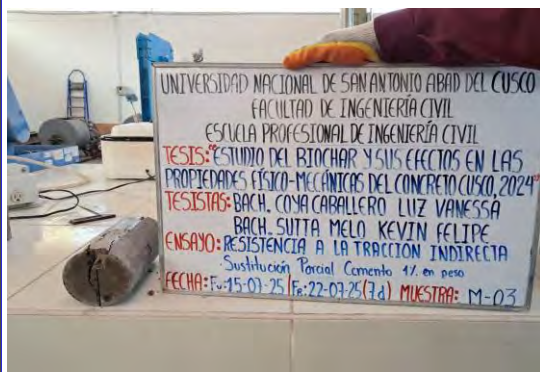 UNIVERSIDAD NACIONAL DE SAN ANTONIO ABAD DEL CUSCO
FACULTAD DE INGENIERÍA CIVIL
ESCUELA PROFESIONAL DE INGENIERÍA CIVIL
TESIS: "ESTUDIO DEL BIOCHAR Y SUS EFECTOS EN LAS
PROPIEDADES FÍSICO-MECÁNICAS DEL CONCRETO CUSCO, 2024"
TESISTAS: BACH. COYA CABALLERO LUZ VANESSA
BACH. SUTTA MELO KEVIN FELIPE
ENSAYO: RESISTENCIA A LA TRACCION INDIRECTA
Sustitución Parcial Cemento 1% en peso
FECHA: Fv: 15-07-25 / Fr: 22-07-25 (7d) MUESTRA: M-03